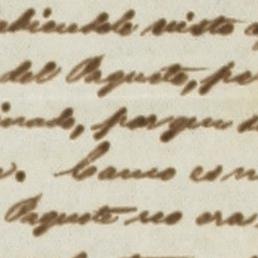 abiendole visto
del Paquete, pe
inado, porque
. Como es
Paquete no era